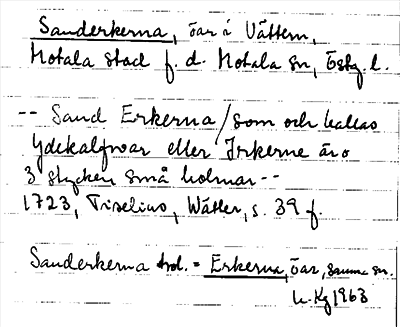 Sanderkerna, öar i Vättern,
Motala stad f. d. Motala sn, Östg. l.
-- Sand Erkerna /som och kallas
Ydekalfwar eller Irkerne äro
3 stycken små holmar --
1723, Tiselius, Wätter, s. 39 f.
Sanderkerna trol. = Erkerna, öar, samma sn.
1963